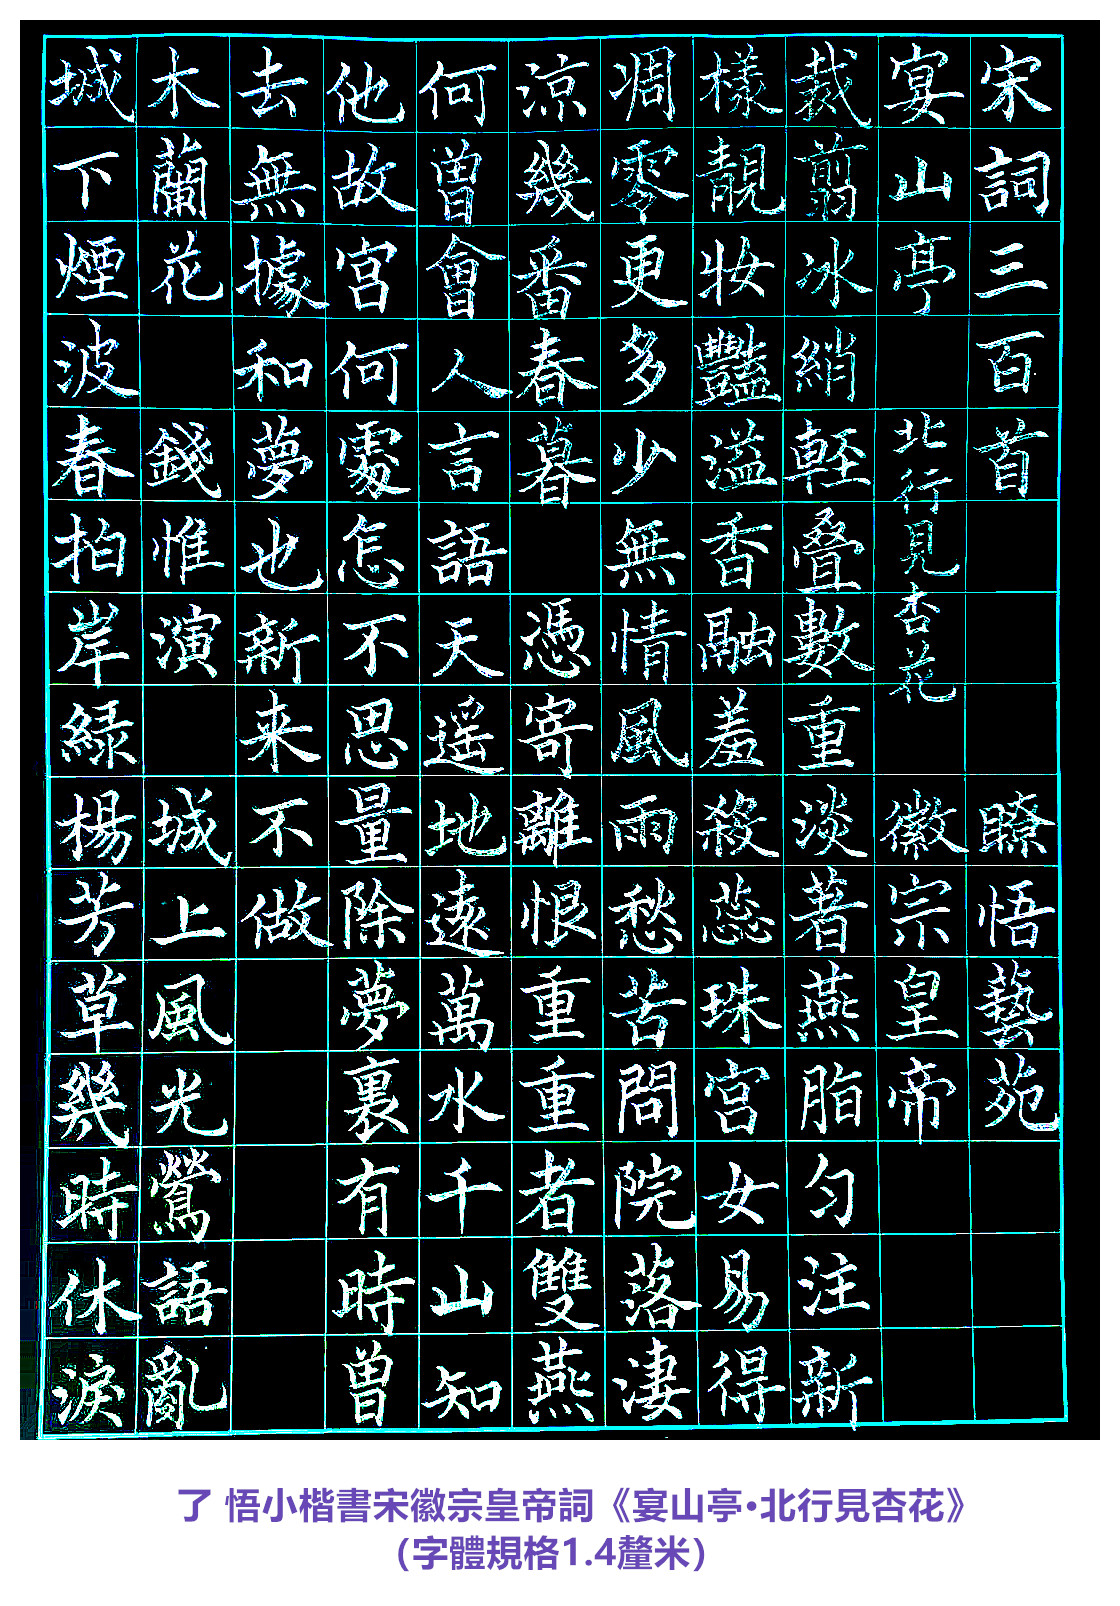 宋詞三百首 瞭悟藝苑
宴山亭 北行見杏花 徽宗皇帝
裁翦冰綃輕叠數重淡著燕脂匀注新
樣靚妝豔溢香融羞殺蕊珠宮女易得
凋零更多少無情風雨愁苦問院落淒
涼幾番春暮 憑寄離恨重重者雙燕
何曾會人言語天遥地遠萬水千山知
他故宮何處怎不思量除夢裏有時曾
去無據和夢也新来不做
木蘭花 錢惟演 城上風光鶯語亂
城下煙波春拍岸綠楊芳草幾時休淚
了 悟小楷書宋徽宗皇帝詞《宴山亭•北行見杏花》
（字體規格1.4釐米）